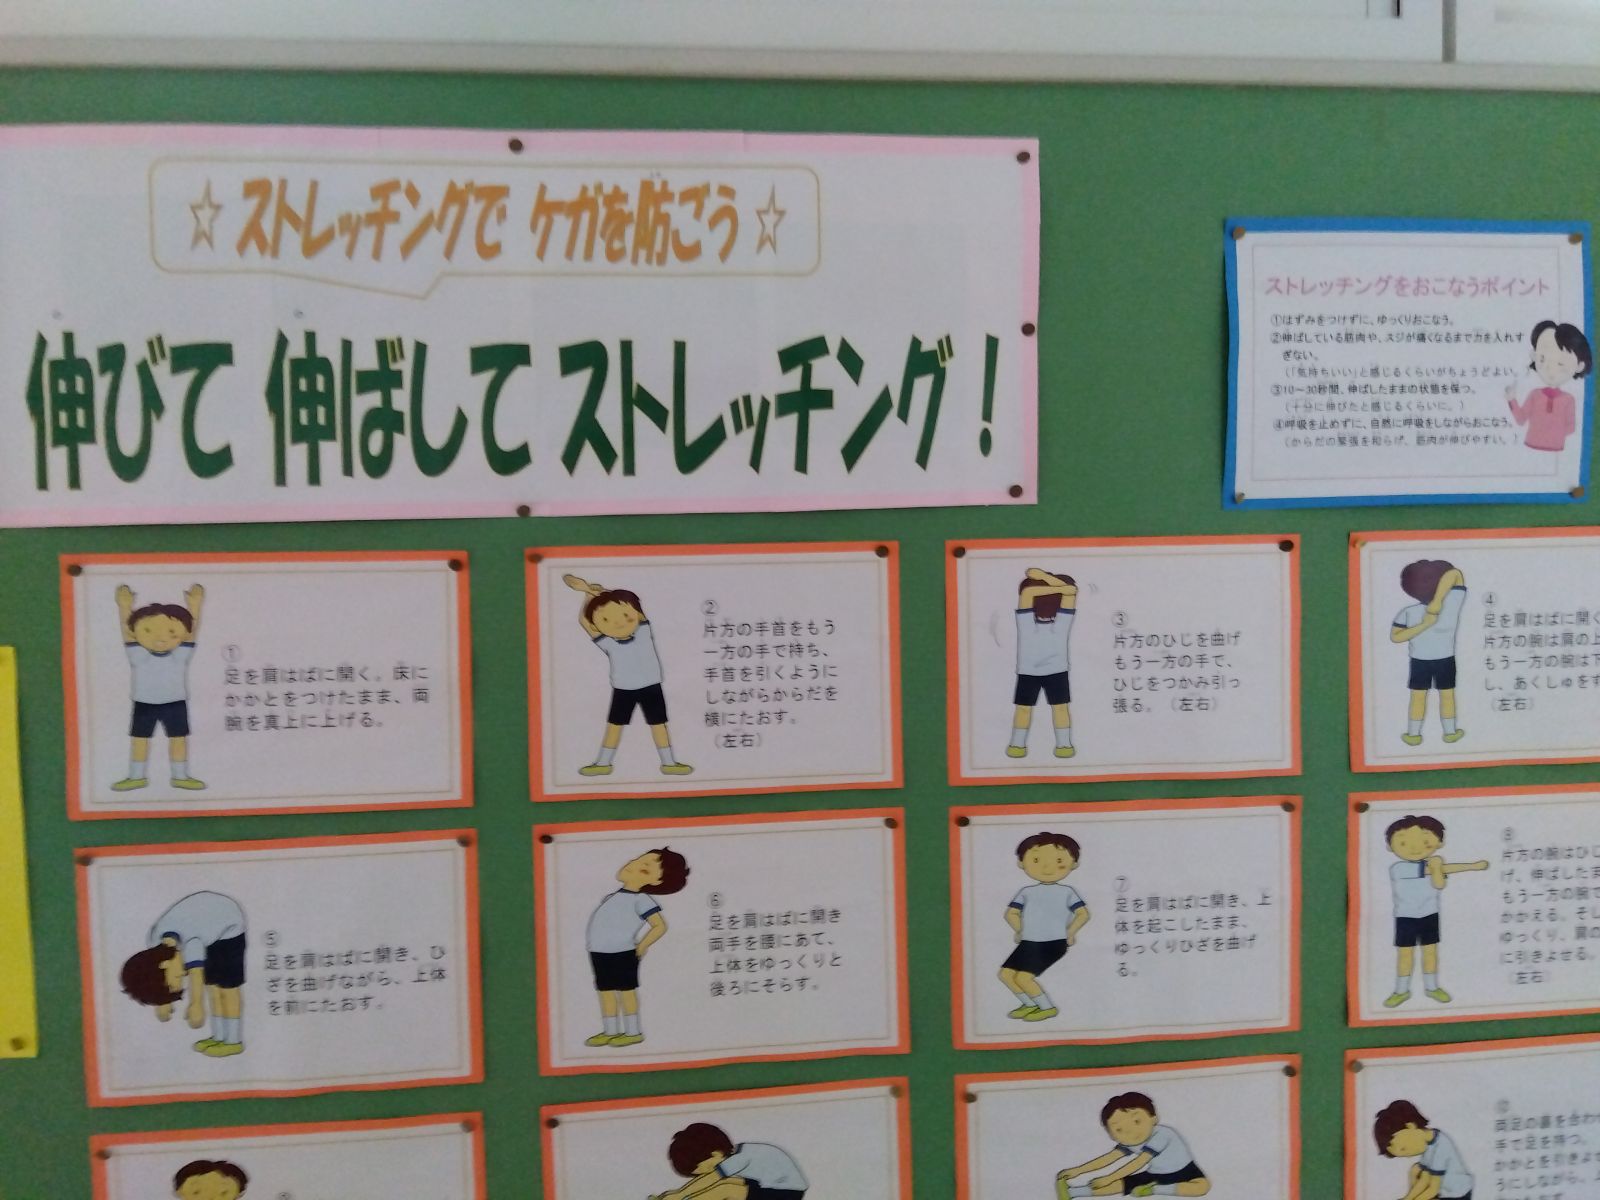 ☆ストレッチングで ケガを防ごう☆
伸びて 伸ばして ストレッチング！
ストレッチングをおこなうポイント
①はずみをつけずに、ゆっくりおこなう。
②伸ばしている筋肉や、スジが痛くなるまで力を入れす
ぎない。
（「気持ちいい」と感じるくらいがちょうどよい。）
③10～30秒間、伸ばしたままの状態を保つ。
（十分に伸びたと感じるくらいに。）
④呼吸を止めずに、自然に呼吸をしながらおこなう。
（からだの緊張を和らげ、筋肉が伸びやすい。）
①
足を肩はばに開く。床に
かかとをつけたまま、両
腕を真上に上げる。
②
片方の手首をもう
一方の手で持ち、
手首を引くように
しながらからだを
横にたおす。
（左右）
③
片方のひじを曲げ
もう一方の手で、
ひじをつかみ引っ
張る。（左右）
④
足を肩はばに開く
片方の腕は肩の上
もう一方の腕は下
し、あくしゅをす
（左右）
⑤
足を肩はばに開き、ひ
ざを曲げながら、上体
を前にたおす。
⑥
足を肩はばに開き
両手を腰にあて、
上体をゆっくりと
後ろにそらす。
⑦
足を肩はばに開き、上
体を起こしたまま、
ゆっくりひざを曲げ
る。
⑧
片方の腕はひじ
げ、伸ばしたま
もう一方の腕で
かかえる。そし
ゆっくり、肩の
に引きよせる。
（左右）
⑫
両足の裏を合わ
手で足を持つ。
かかとを引きよせ
うにしながら、